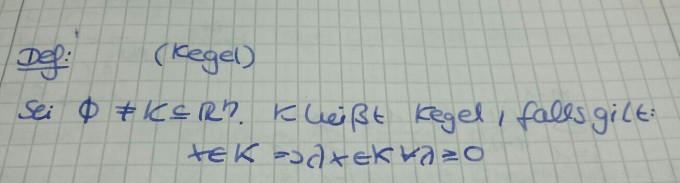 Def: (Kegel)
Sei ∅ ≠ K ⊆ ℝⁿ. K heißt Kegel, falls gilt:
x ∈ K ⇒ λx ∈ K ∀ λ ≥ 0